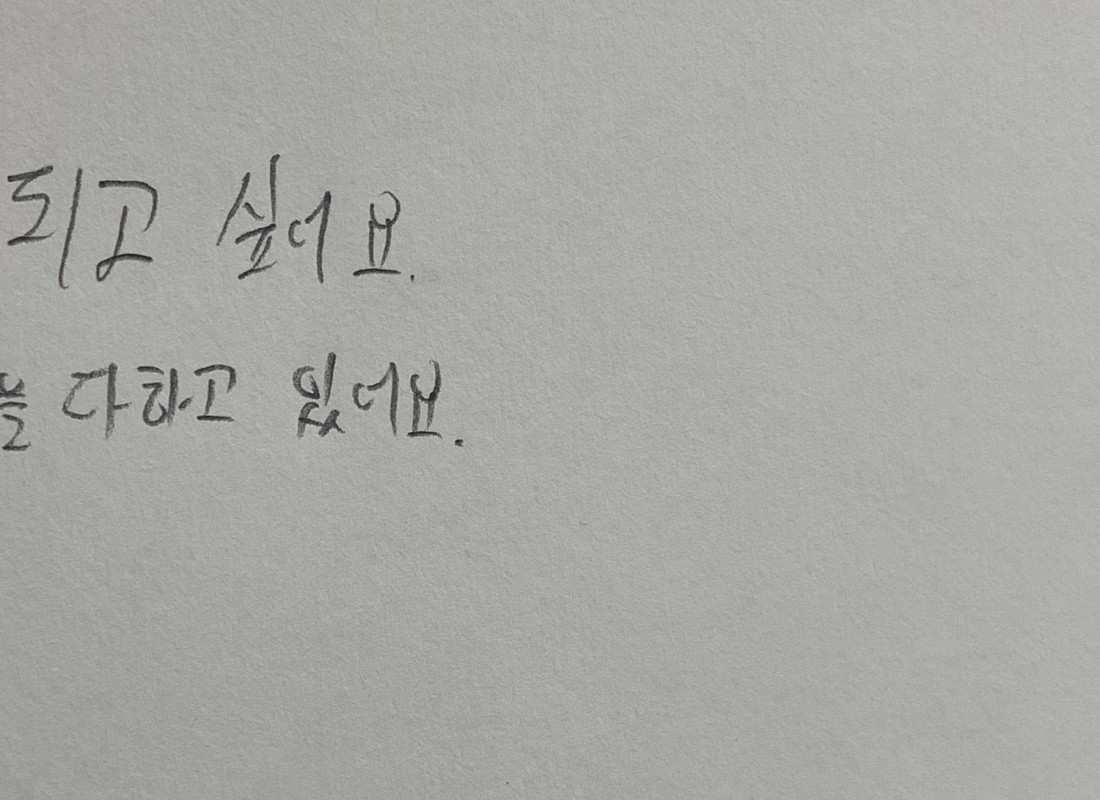 되고 싶어요.
다하고 있어요.